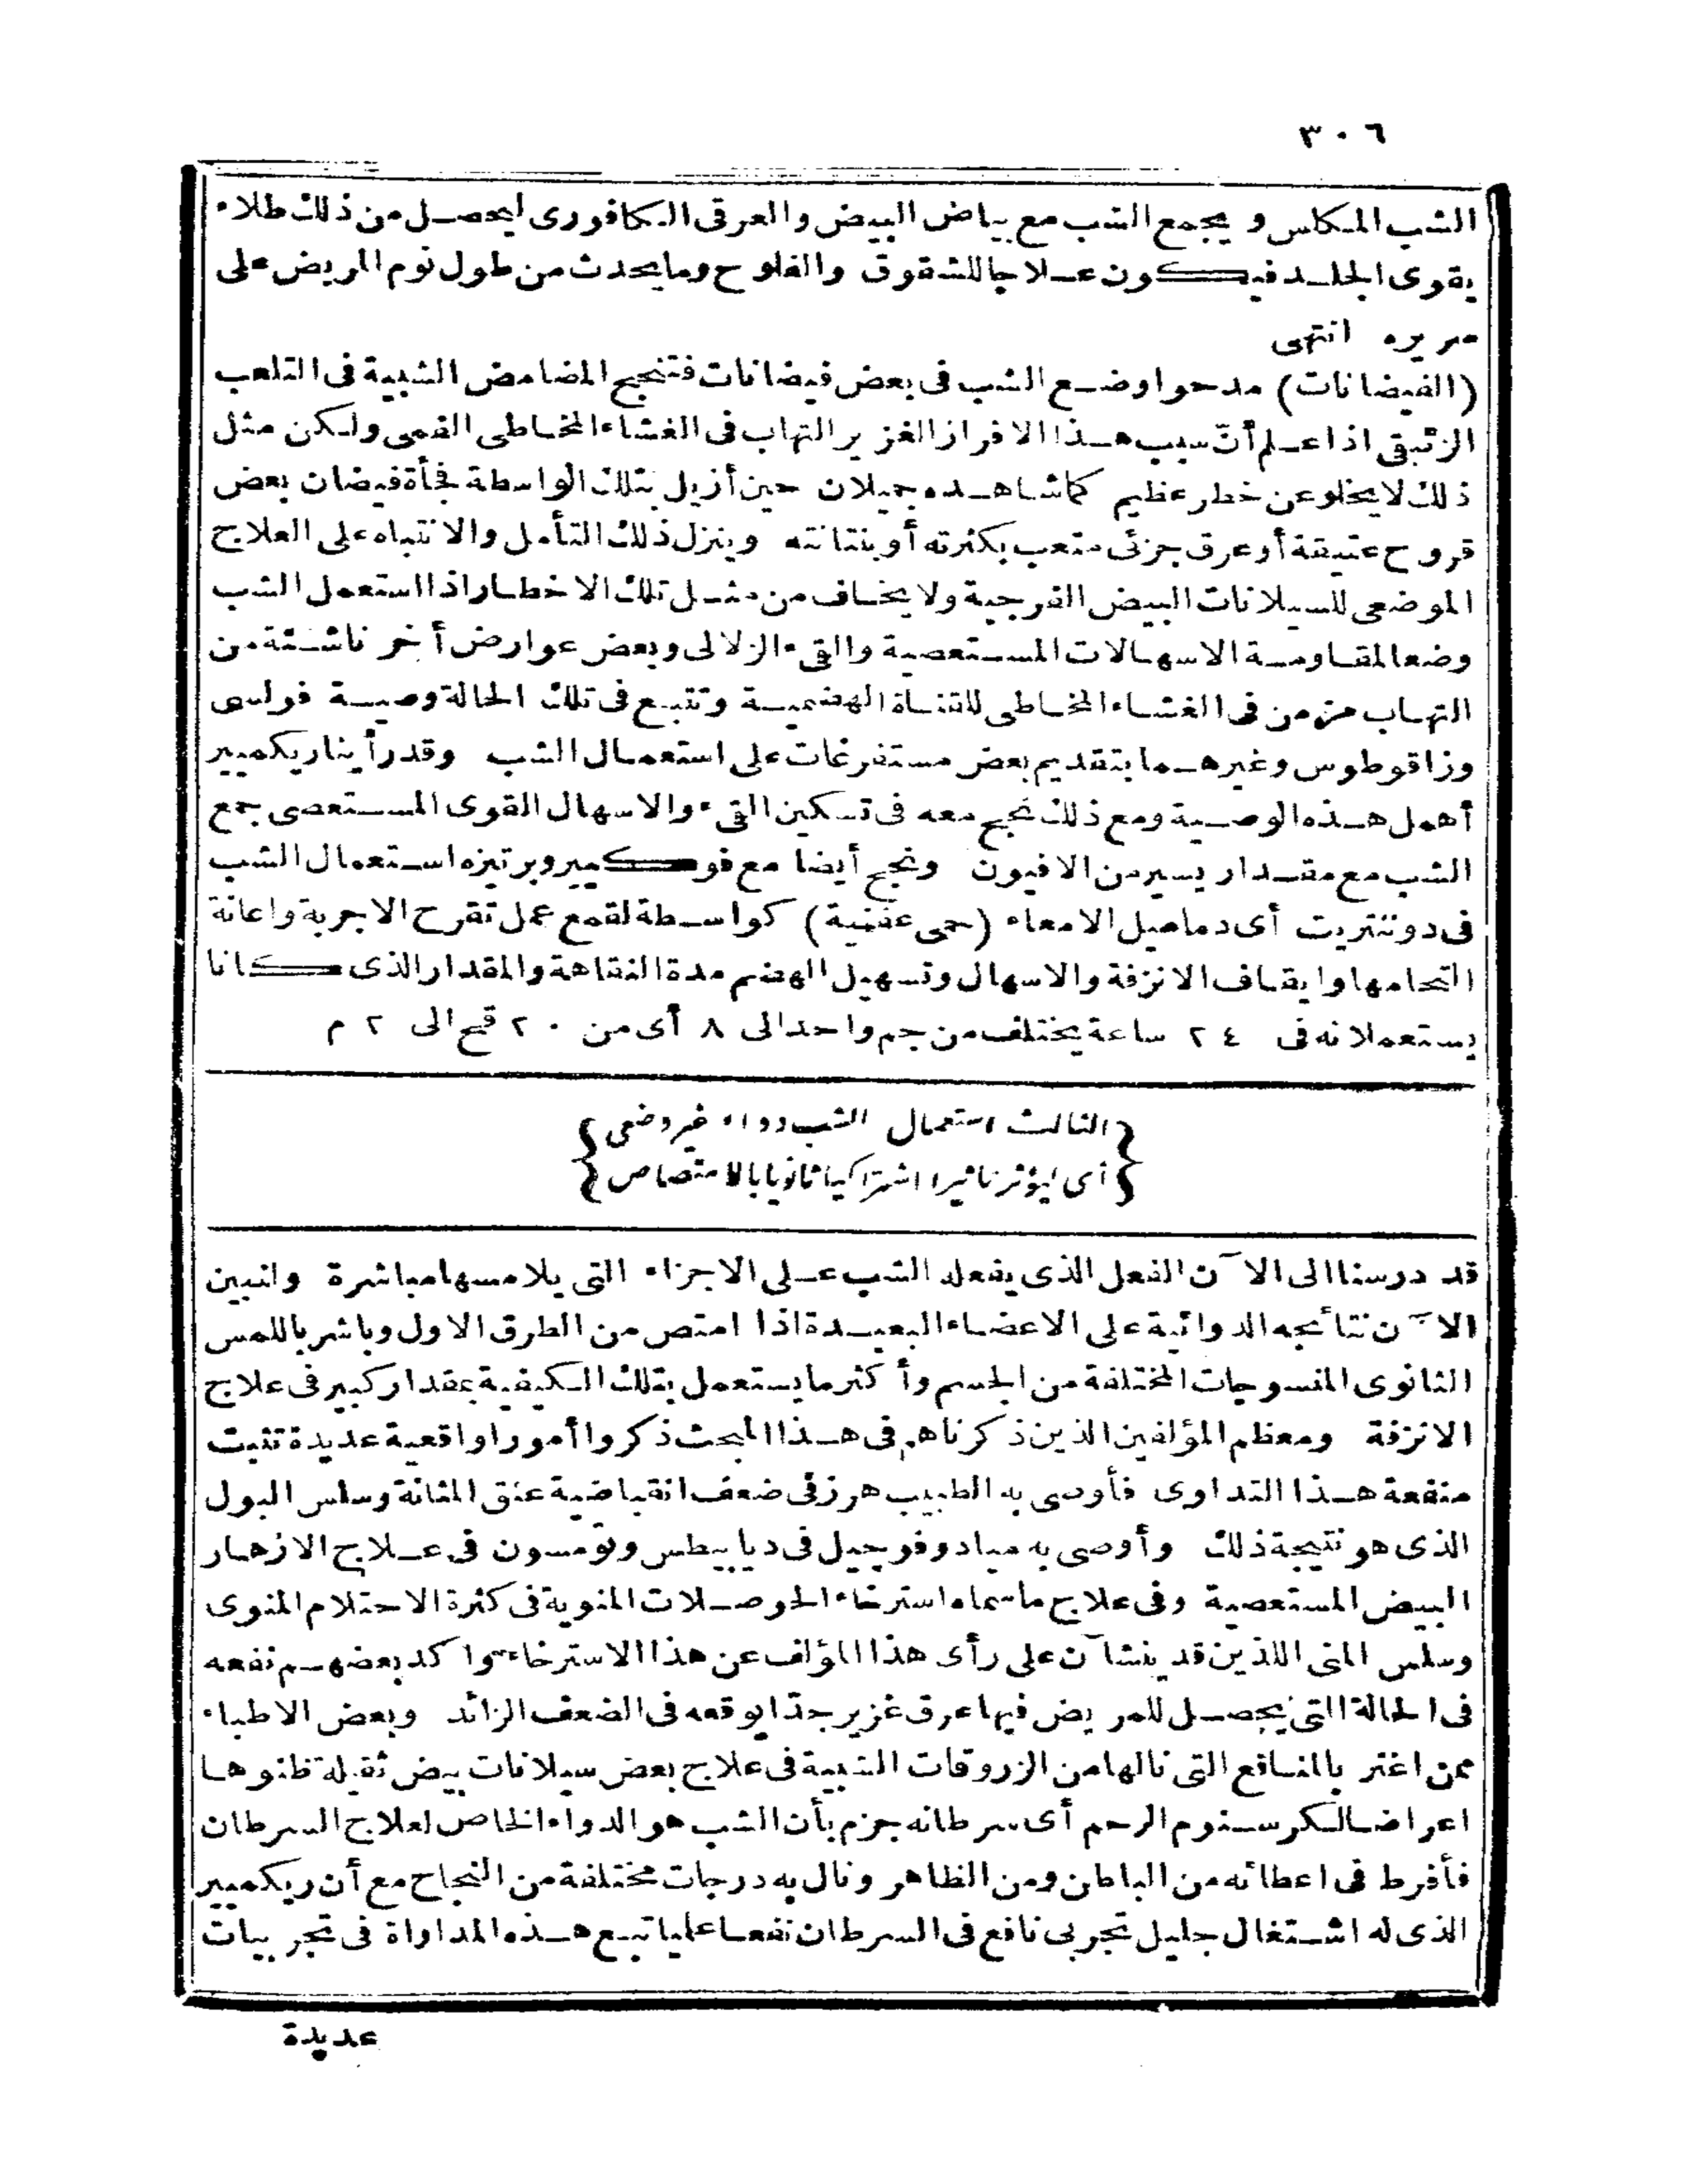 ٣٠٦
الشب المكلس ويجمع الشب مع بياض البيض والعرقى الكافورى ليحصل من ذلك طلاء
يقوى الجلد فيكون علاجا للشقوق والفلوح وما يحدث من طول نوم المريض على
سريره انتهى
(الفيضانات) مدحوا وضع الشب فى بعض فيضانات فتنجح المضامض الشبية فى التلعب
الزئبقى اذا علم أنّ سبب هذا الافراز الغزير التهاب فى الغشاء المخاطى الفمى ولكن مثل
ذلك لا يخلو عن خطر عظيم كما شاهده جميلان حين أزيل بتلك الواسطة فجأة فيضان بعض
قروح عتيقة أو عرق جزئى متعب بكثرته أو بنتانته وينزل ذلك التأمل والانتباه على العلاج
الموضعى للسيلانات البيض الفرجية ولا يخاف من مثل تلك الاخطار اذا استعمل الشب
وضعا لمقاومة الاسهالات المستعصية والقىء الزلالى وبعض عوارض أخر ناشئة من
التهاب مزمن فى الغشاء المخاطى للقناة الهضمية وتتبع فى تلك الحالة وصية فولسى
وزاقوطوس وغيرهما بتقديم بعض مستفرغات على استعمال الشب وقد رأينا ريكميير
أهمل هذه الوصية ومع ذلك نجح معه فى تسكين القىء والاسهال القوى المستعصى جمع
الشب مع مقدار يسير من الافيون ونجح أيضا مع فوكيير وبرتيزه استعمال الشب
فى دوتنتريت أى دماميل الامعاء (حمى عفنية) كواسطة لقمع عمل تقرح الاجربة واعانة
التحامها وايقاف الانزفة والاسهال وتسهيل الهضم مدة النقاهة والمقدار الذى كانا
يستعملانه فى ٢٤ ساعة يختلف من جم واحد الى ٨ أى من ٢٠ قمح الى ٢ م
{الثالث استعمال الشب دواء غير وضعى}
{أى ليؤثر تاثيرا اشتراكيا ثانويا بالامتصاص}
قد درسنا الى الآن الفعل الذى يفعله الشب على الاجزاء التى يلامسها مباشرة ولنبين
الآن نتائجه الدوائية على الاعضاء البعيدة اذا امتص من الطرق الاول وباشر باللمس
الثانوى المنسوجات المختلفة من الجسم وأكثر ما يستعمل بتلك الكيفية بمقدار كبير فى علاج
الانزفة ومعظم المؤلفين الذين ذكرناهم فى هذا المبحث ذكروا أمورا واقعية عديدة تثبت
منفعة هذا التداوى فأوصى به الطبيب هرز فى ضعف انقباضية عنق المثانة وسلس البول
الذى هو نتيجة ذلك وأوصى به ميادو فوجيل فى ديابيطس وتومسون فى علاج الازهار
البيض المستعصية وفى علاج ما سماه استرخاء الحوصلات المنوية فى كثرة الاحتلام المنوى
وسلس المنى اللذين قد ينشآن على رأى هذا المؤلف عن هذا الاسترخاء وأكد بعضهم نفعه
فى الحالة التى يحصل للمريض فيها عرق غزير جدّا يوقعه فى الضعف الزائد وبعض الاطباء
ممن اغتر بالمنافع التى نالها من الزروقات الشبية فى علاج بعض سيلانات بيض ثقيلة ظنوها
اعراضا لكرسنوم الرحم أى سرطانه جزم بأن الشب هو الدواء الخاص لعلاج السرطان
فأفرط فى اعطائه من الباطن ومن الظاهر ونال به درجات مختلفة من النجاح مع أن ريكميير
الذى له اشتغال جليل تجربى نافع فى السرطان نفعا عليا تبع هذه المداواة فى تجربيات
عديدة